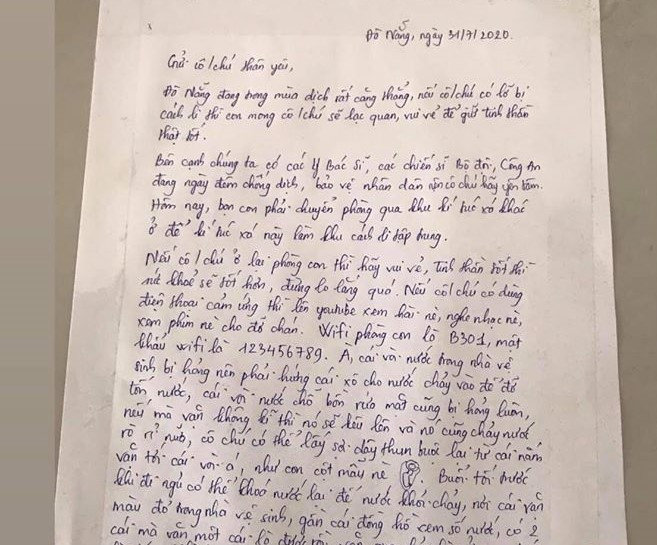 Đà Nẵng, ngày 31/7/2020.
Gửi cô/chú thân yêu,
Đà Nẵng đang trong mùa dịch rất căng thẳng, nếu cô/chú có lỡ bị
cách li thì con mong cô/chú sẽ lạc quan, vui vẻ để giữ tinh thần
thật tốt.
Bên cạnh chúng ta có các Y Bác Sĩ, các chiến sĩ Bộ đội, Công An
đang ngày đêm chống dịch, bảo vệ nhân dân nên cô chú hãy yên tâm.
Hôm nay, bọn con phải chuyển phòng qua khu kí túc xá khác
ở để kí túc xá này làm khu cách li tập trung.
Nếu cô/chú ở lại phòng con thì hãy vui vẻ, tinh thần tốt thì
sức khoẻ sẽ tốt hơn, đừng lo lắng quá. Nếu cô/chú có dùng
điện thoại cảm ứng thì lên youtube xem hài nè, nghe nhạc nè,
xem phim nè cho đỡ chán. Wifi phòng con là B301, mật
khẩu wifi là 123456789. À, cái vòi nước trong nhà vệ
sinh bị hỏng nên phải hứng cái xô cho nước chảy vào đó để đỡ
tốn nước, cái vòi nước chỗ bồn rửa mặt cũng bị hỏng luôn,
nếu mà vặn không kĩ thì nó sẽ kêu lên và nó cũng chảy nước
rò rỉ nữa, cô chú có thể lấy sợi dây thun buộc lại từ cái nắm
vặn tới cái vòi á, như con cột mẫu nè . Buổi tối trước
khi đi ngủ có thể khoá nước lại để nước khỏi chảy, nơi cái vặn
màu đỏ trong nhà vệ sinh, gần cái đồng hồ xem số nước, có 2
cái mà vặn một cái là được rồi